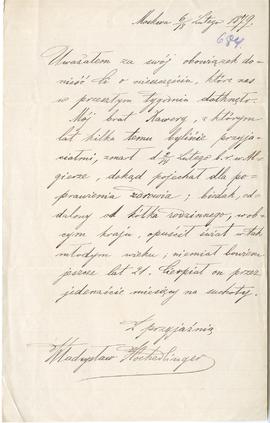 Moskwa 6/18 Lutego 1879.
684
Uważałem za swój obowiązek do-
nieść Ci o nieszczęściu, które nas
w przeszłym tygodniu dotknęło.
Mój brat Xawery, z którym
lat kilka temu byliście przyja-
ciółmi, zmarł d. Lutego b.r. w Al-
gierze, dokąd pojechał dla po-
prawienia zdrowia; biedak, od-
dalony od kółka rodzinnego, w ob-
cym kraju, opuścił świat w tak
młodym wieku; niemiał bowiem
jeszcze lat 21. Cierpiał on przez
jedenaście miesięcy na suchoty.
Z przyjaźnią
Władysław